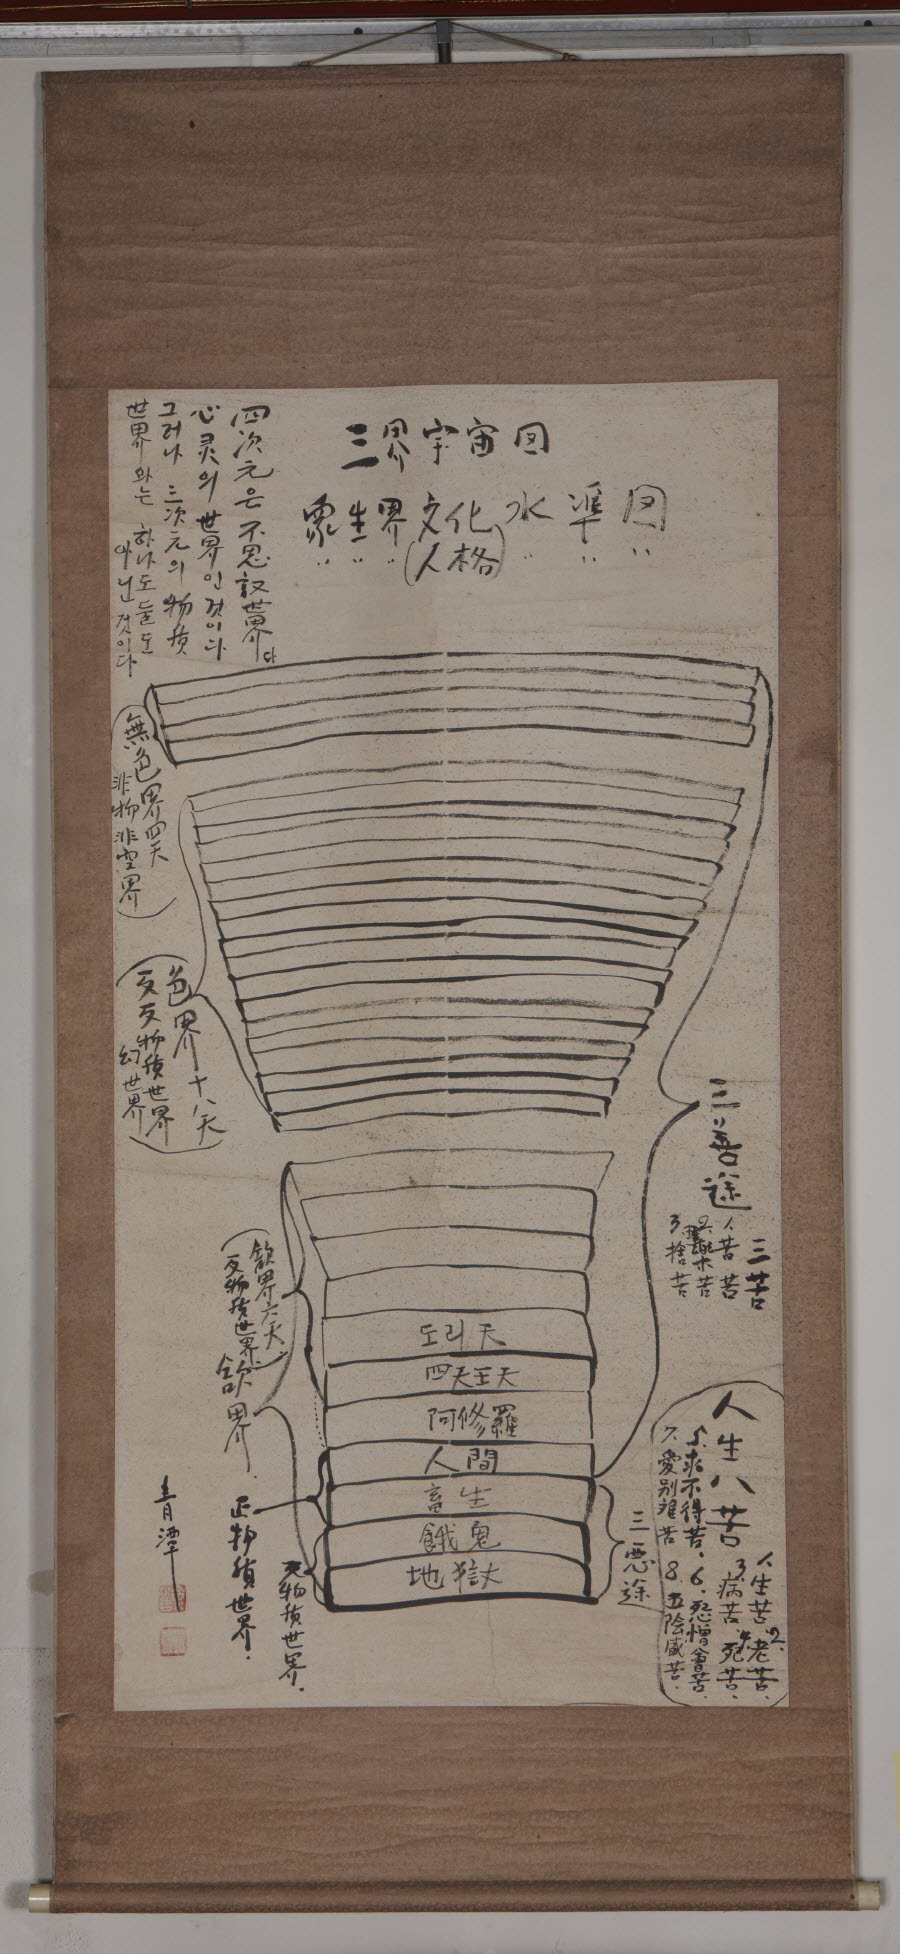 三界宇宙図
衆生界文化水準図
〃〃〃(人格)〃〃〃
四次元은 不思議世界다
心灵의 世界인 것이다
그러나 三次元의 物质
世界와는 하나도 둘도
아닌 것이다
無色界四天
非物非空界
色界十八天
反反物质世界
幻世界
欲界六天
反物质世界
欲界
正物质世界.
物质世界.
도리天
四天王天
阿修羅
人間
畜生
餓鬼
地獄
三善途
三苦
1. 苦苦
2. 樂苦
3. 捨苦
三惡途
人生八苦
1. 生苦 2. 老苦.
3. 病苦. 4. 死苦.
5. 求不得苦. 6. 怨憎會苦.
7. 愛别離苦 8. 五陰盛苦.
青潭